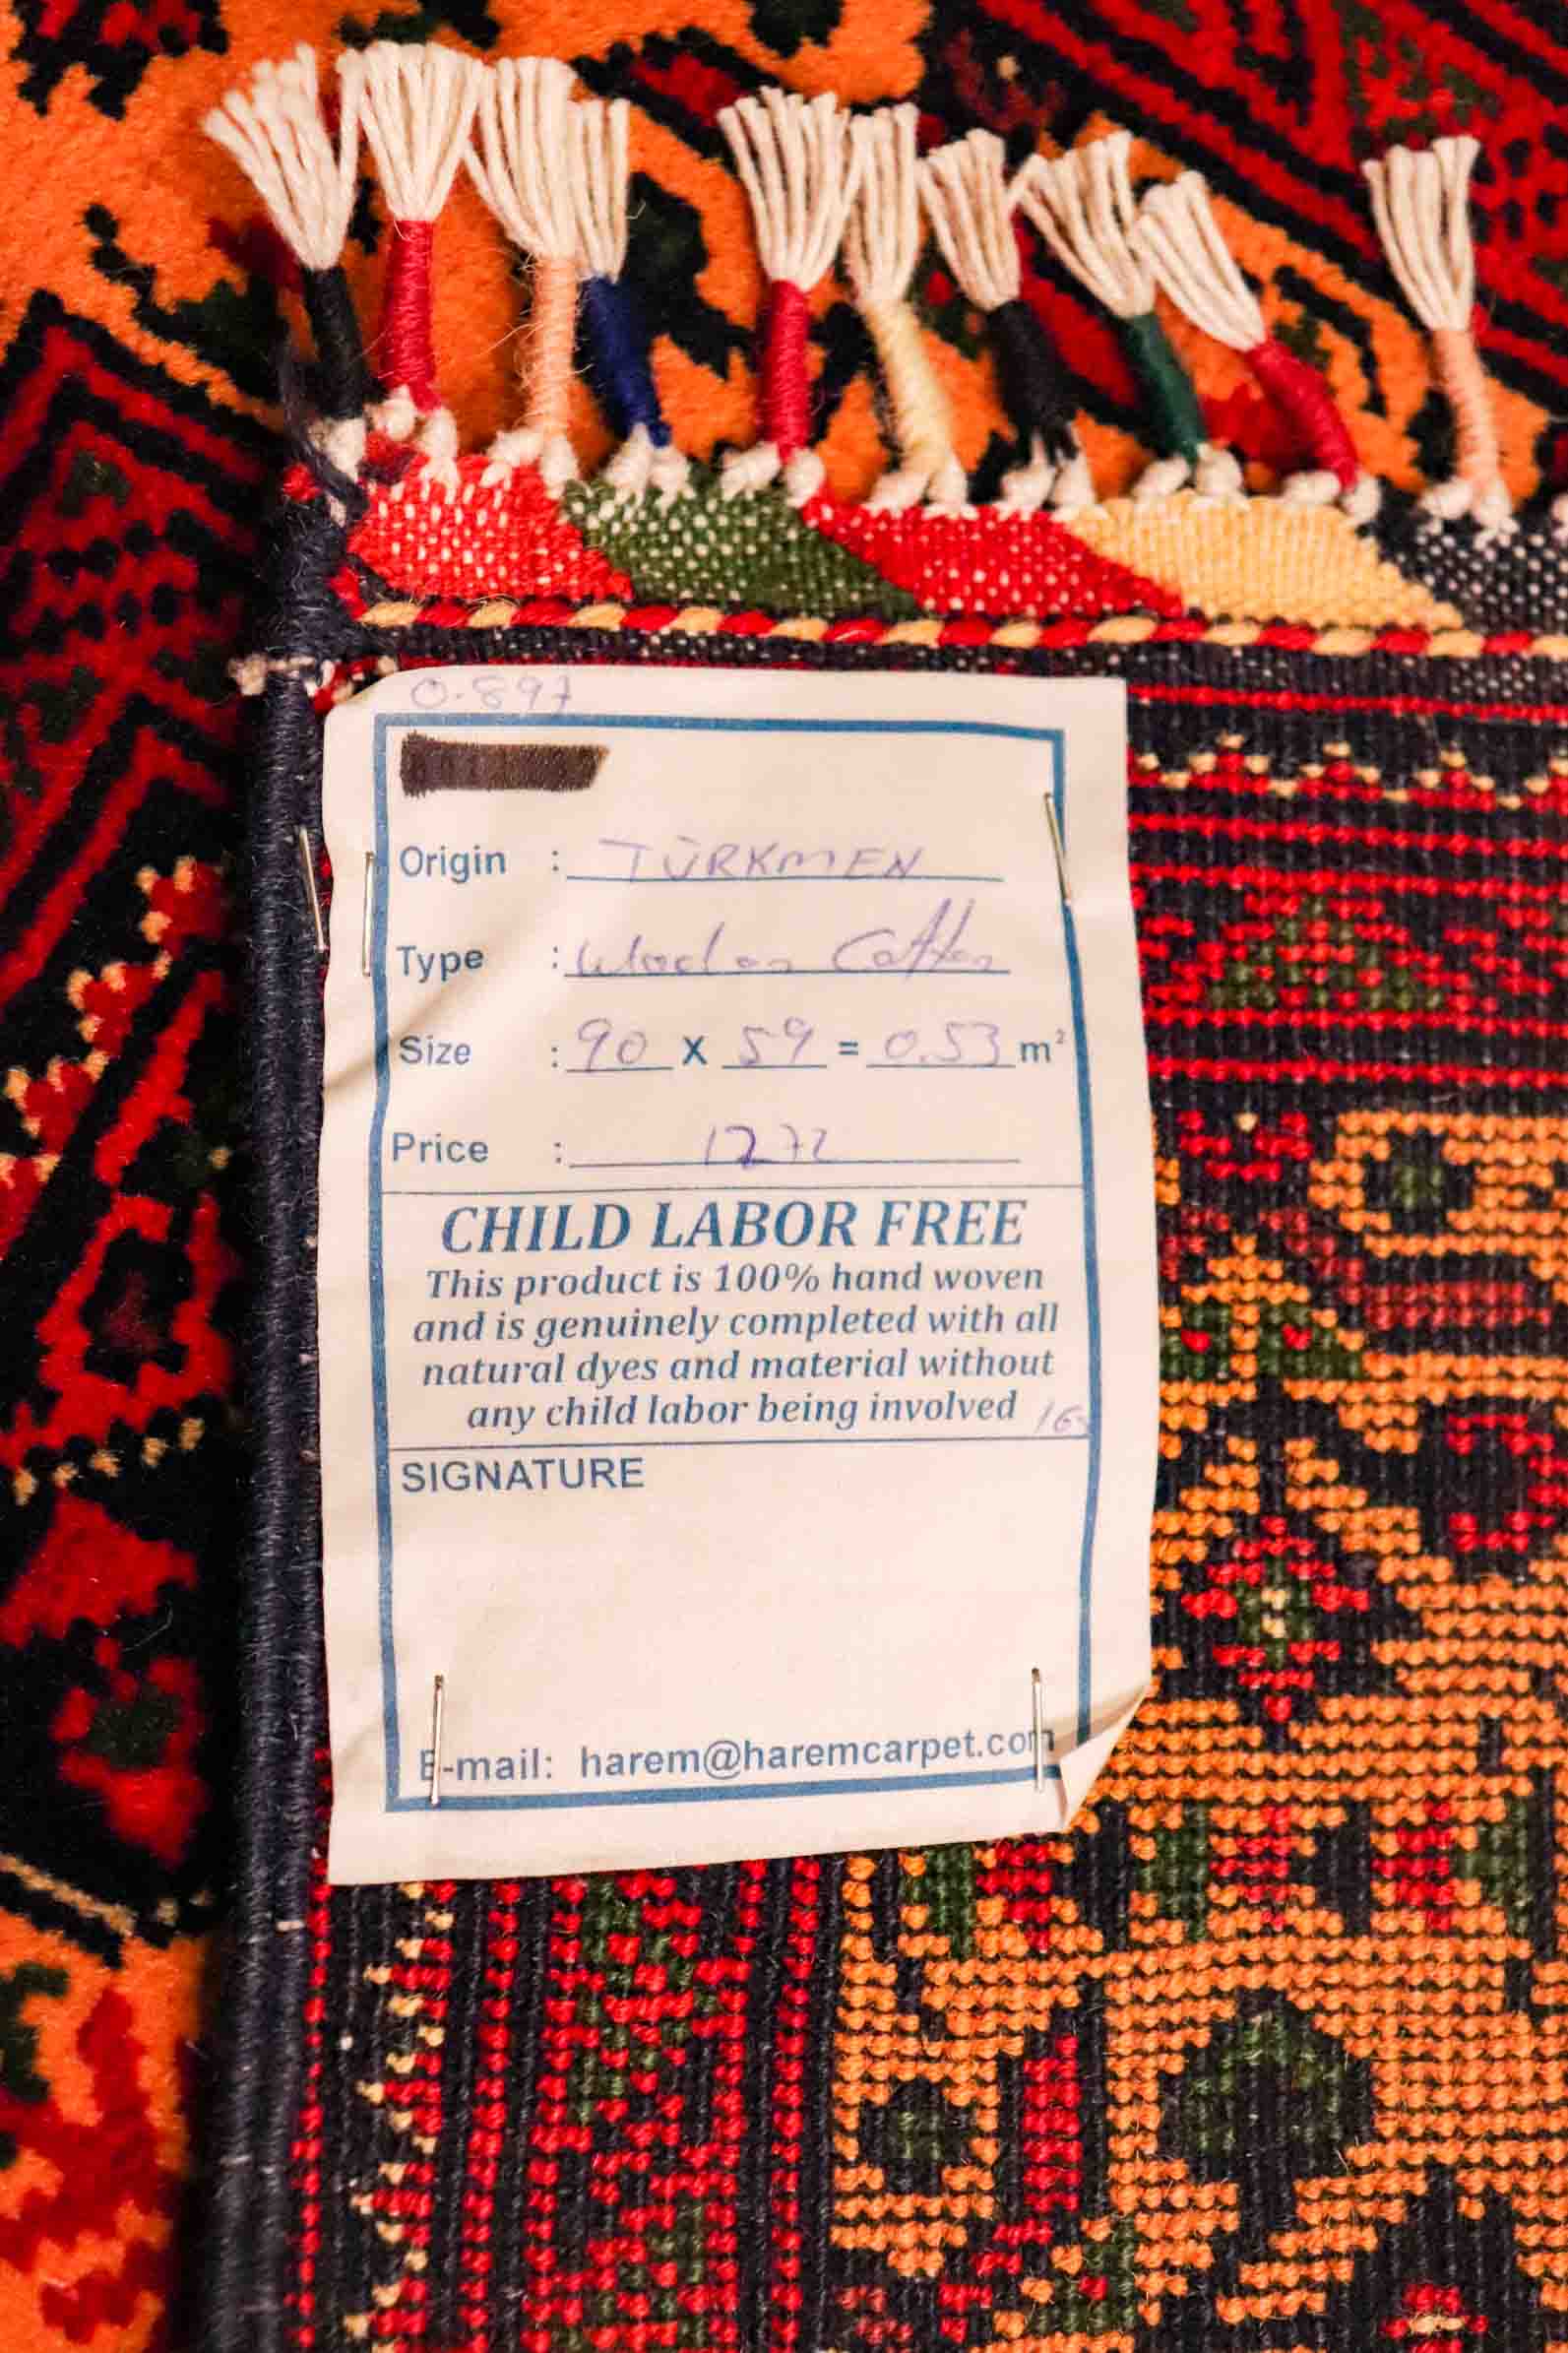 0.897
Origin : TÜRKMEN
Type : Wool on Cotton
Size : 90 x 59 = 0.53 m²
Price : 1272
CHILD LABOR FREE
This product is 100% hand woven
and is genuinely completed with all
natural dyes and material without
any child labor being involved
SIGNATURE
E-mail: harem@haremcarpet.com